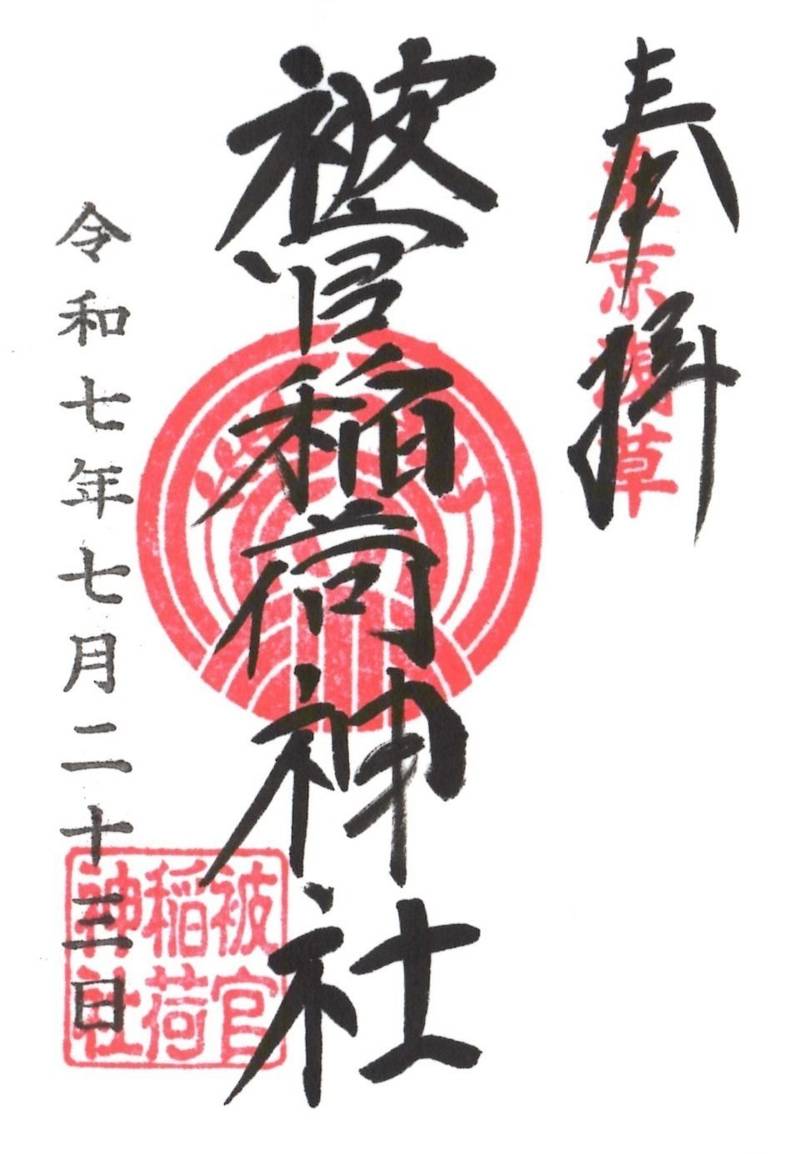 奉拝
東京浅草
被官稲荷神社
被官
稲荷
神社
令和七年七月二十三日